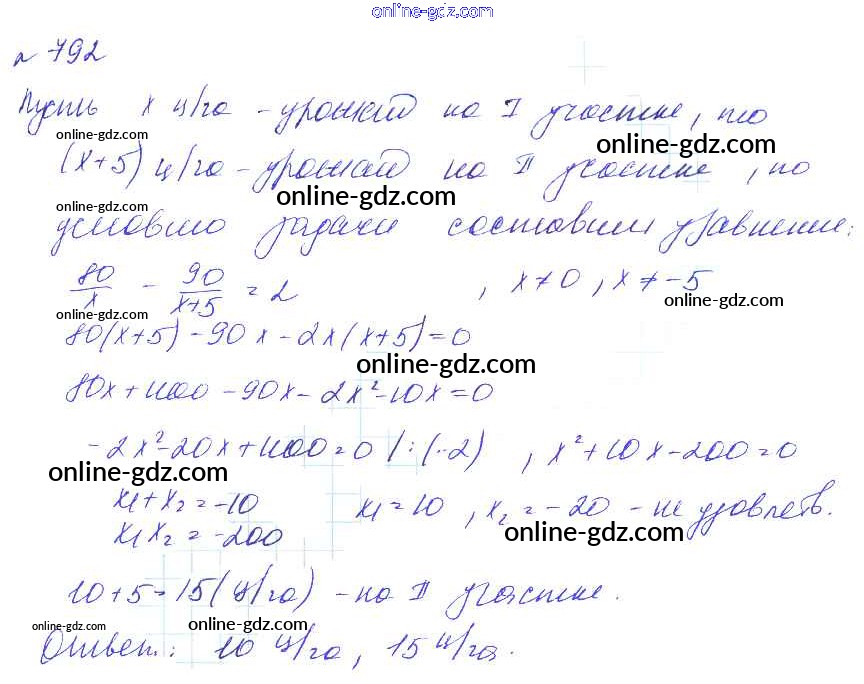 online-gdz.com
№ 792
Пусть x ц/га - урожай на I участке, то
online-gdz.com
online-gdz.com
(x+5) ц/га - урожай на II участке, по
online-gdz.com
online-gdz.com
условию задачи составим уравнение:
80/x - 90/(x+5) = 2 , x≠0, x≠-5
online-gdz.com
online-gdz.com
80(x+5) - 90x - 2x(x+5) = 0
online-gdz.com
80x + 400 - 90x - 2x² - 10x = 0
-2x² - 20x + 400 = 0 | : (-2) , x² + 10x - 200 = 0
online-gdz.com
x₁ + x₂ = -10 x₁ = 10 , x₂ = -20 - не удовлетв.
x₁x₂ = -200
online-gdz.com
10 + 5 = 15 (ц/га) - на II участке.
online-gdz.com
online-gdz.com
Ответ: 10 ц/га, 15 ц/га.
online-gdz.com